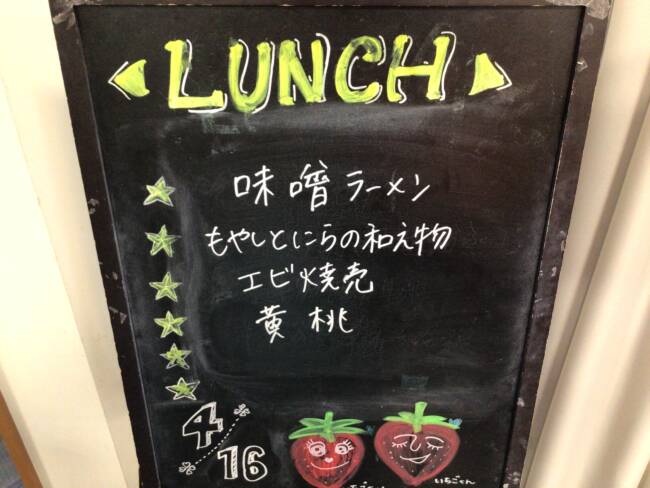 LUNCH
味噌ラーメン
もやしとにらの和え物
エビ焼売
黄桃
4
16